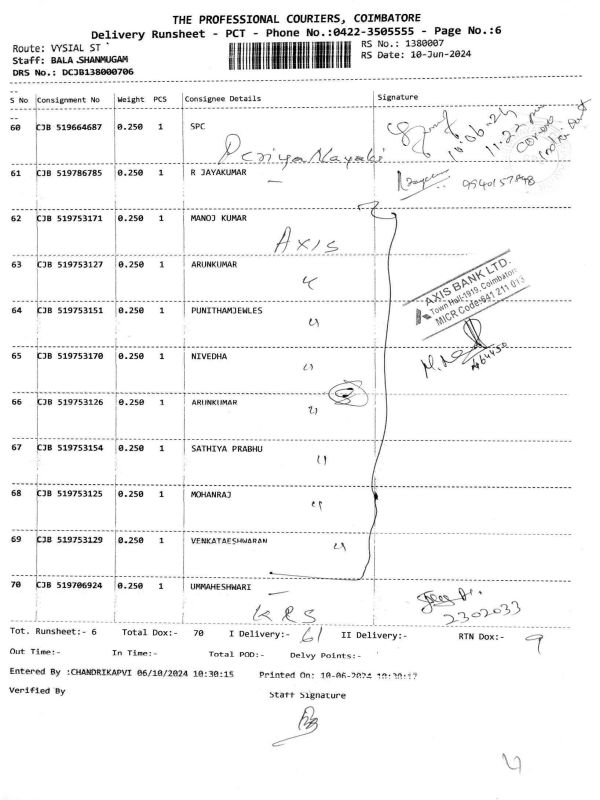 THE PROFESSIONAL COURIERS, COIMBATORE
Delivery Runsheet - PCT - Phone No.:0422-3505555 - Page No.:6
Route: VYSIAL ST RS No.: 1380007
Staff: BALA.SHANMUGAM RS Date: 10-Jun-2024
DRS No.: DCJB138000706
S No Consignment No Weight PCS Consignee Details Signature
60 CJB 519664687 0.250 1 SPC
10.06.24
11.22
61 CJB 519786785 0.250 1 R JAYAKUMAR
9940157848
62 CJB 519753171 0.250 1 MANOJ KUMAR
AXIS
63 CJB 519753127 0.250 1 ARUNKUMAR
AXIS BANK LTD.
Town Hall-1919, Coimbatore
MICR Code:641 211 013
64 CJB 519753151 0.250 1 PUNITHAMJEWLES
65 CJB 519753170 0.250 1 NIVEDHA
66 CJB 519753126 0.250 1 ARUNKUMAR
67 CJB 519753154 0.250 1 SATHIYA PRABHU
68 CJB 519753125 0.250 1 MOHANRAJ
69 CJB 519753129 0.250 1 VENKATAESHWARAN
70 CJB 519706924 0.250 1 UMMAHESHWARI
KRS
2302033
Tot. Runsheet:- 6 Total Dox:- 70 I Delivery:- 61 II Delivery:- RTN Dox:- 9
Out Time:- In Time:- Total POD:- Delvy Points:-
Entered By :CHANDRIKAPVI 06/10/2024 10:30:15 Printed On: 10-06-2024 10:30:17
Verified By Staff Signature